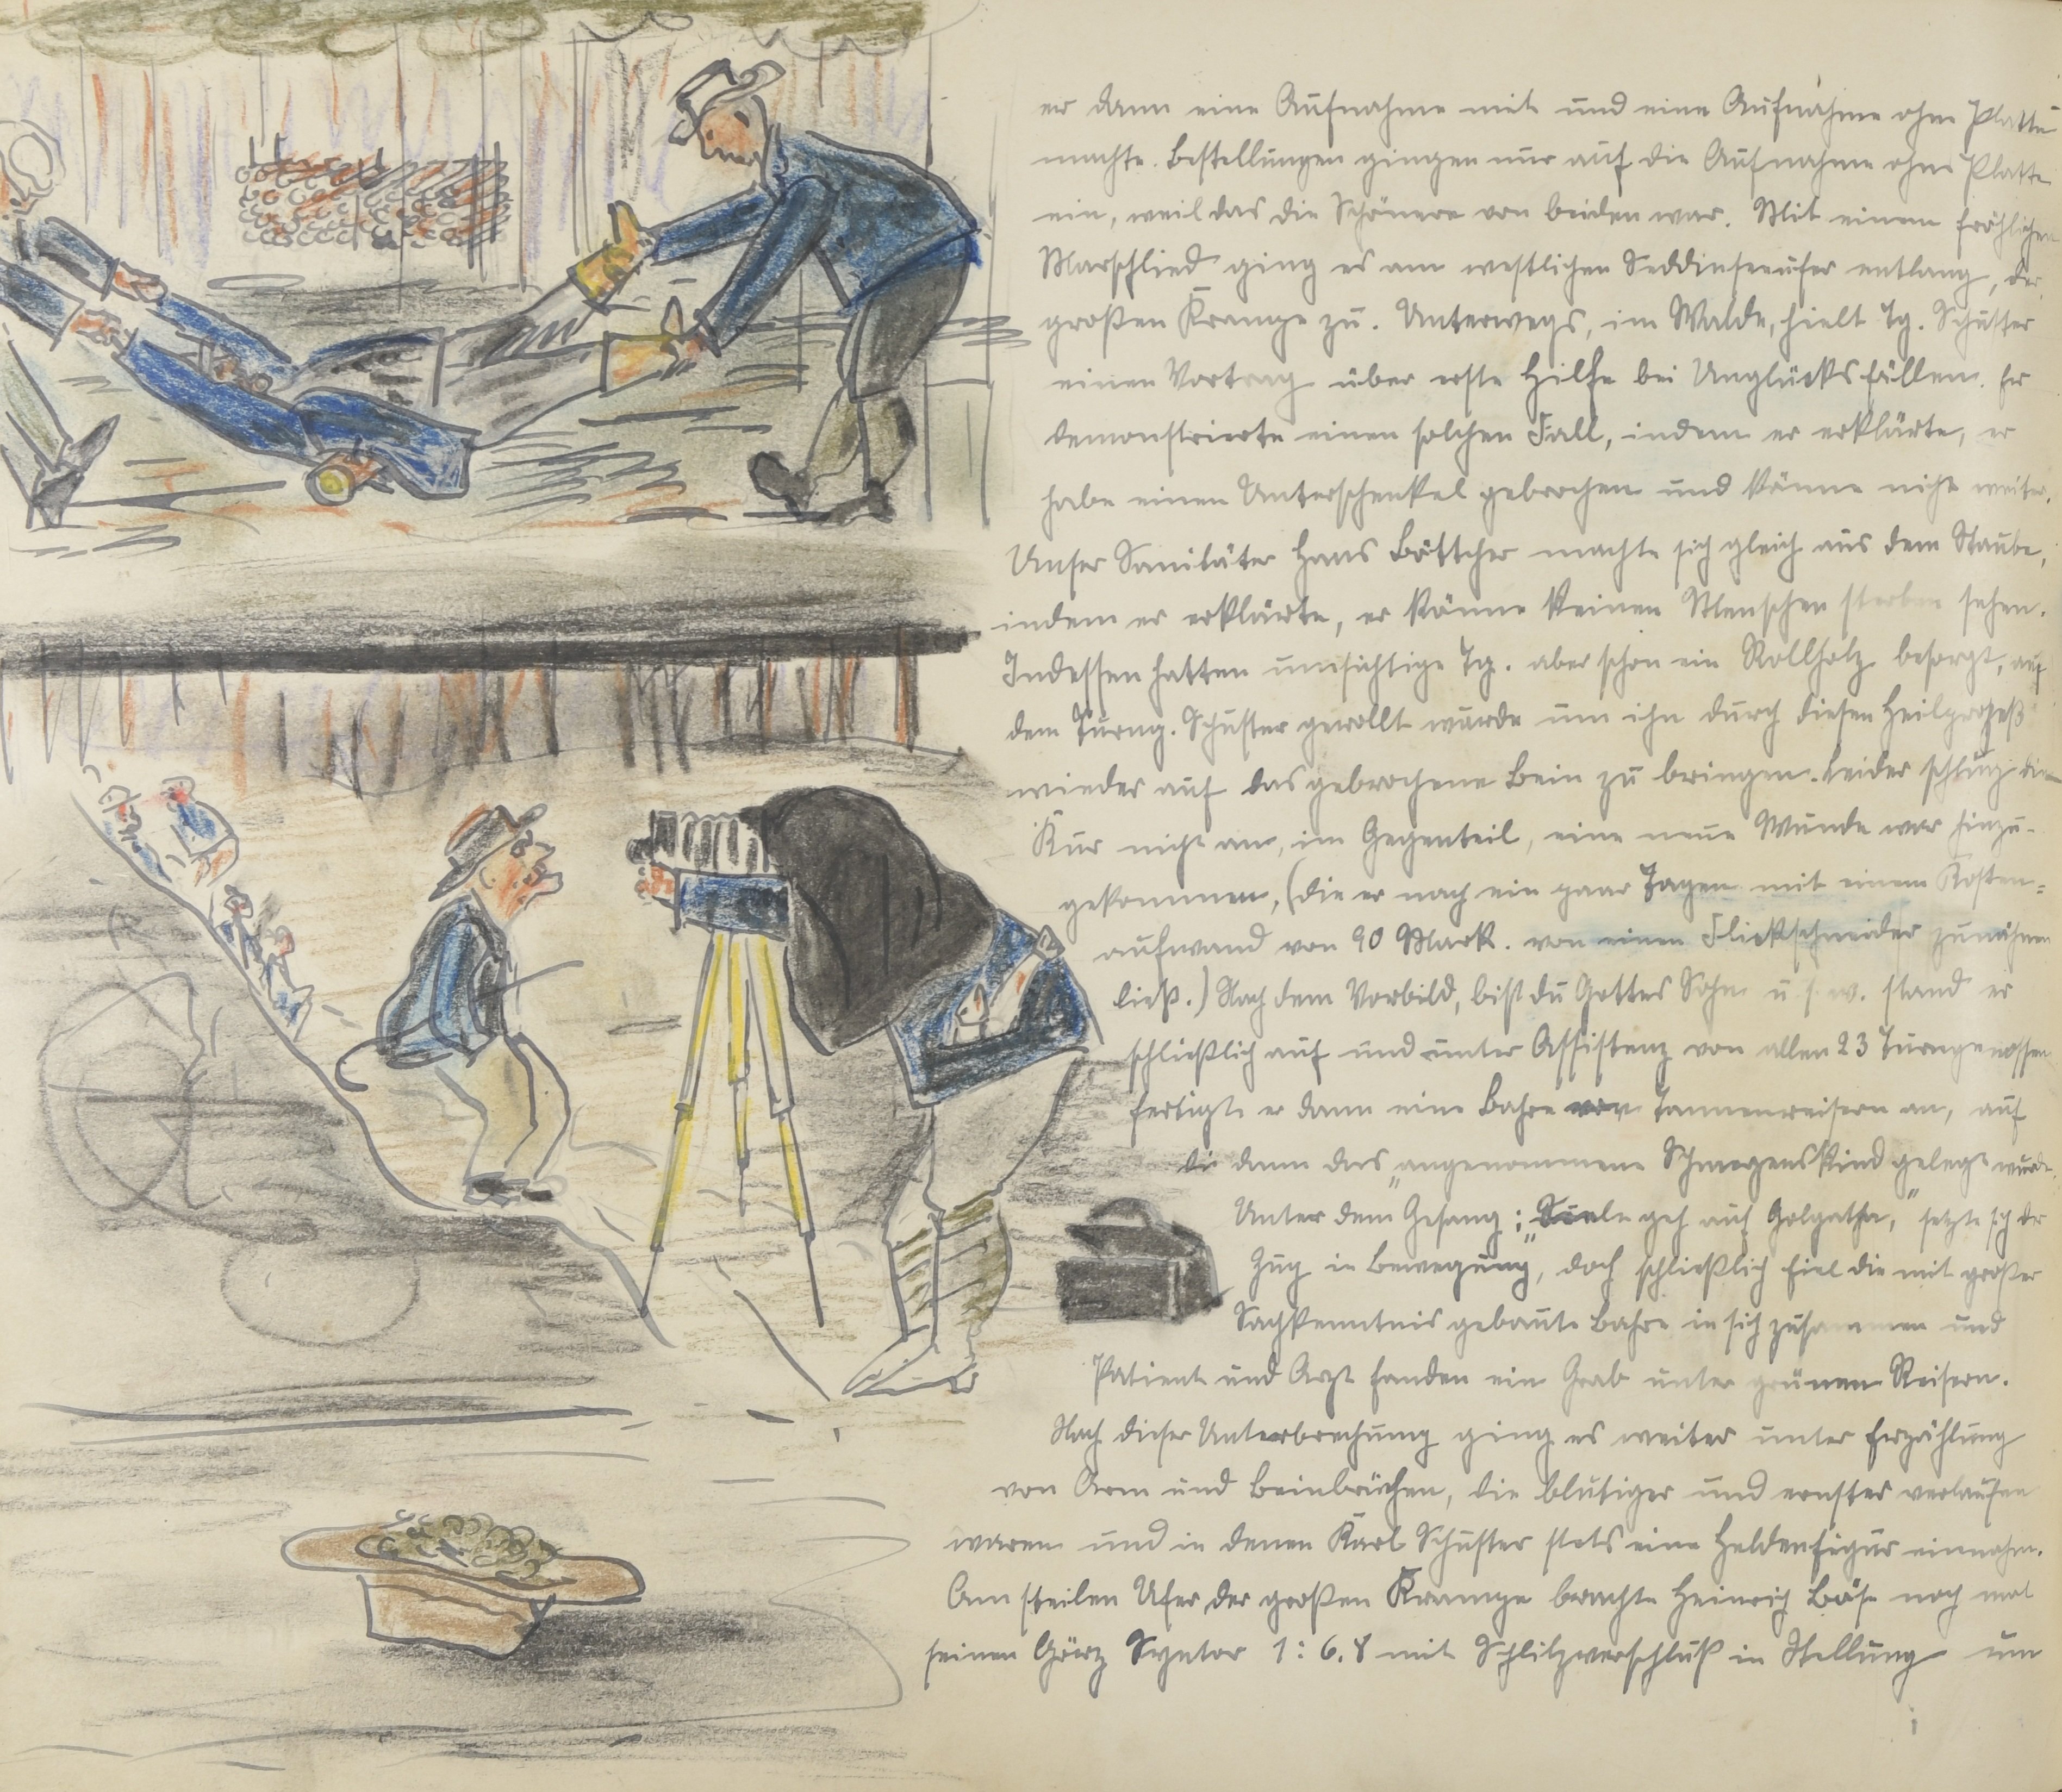 er dann eine Aufnahme mit und eine Aufnahme ohne Platte
machte. Bestellungen gingen nur auf die Aufnahme ohne Platte
ein, weil das die Schönere von beiden war. Mit einem fröhlichen
Marschlied ging es am westlichen Seddinseeufer entlang, der
großen Krampe zu. Unterwegs, im Walde, hielt Tg. Schuster
einen Vortrag über erste Hilfe bei Unglücksfällen. Er
demonstrierte einen solchen Fall, indem er erklärte, er
habe einen Unterschenkel gebrochen und könne nicht weiter.
Unser Sanitäter Hans Böttcher machte sich gleich aus dem Staube,
indem er erklärte, er könne keinen Menschen sterben sehen.
Indessen hatten umsichtige Tg. aber schon ein Rollholz besorgt, auf
dem Turng. Schuster gerollt wurde um ihn durch diesen Heilprozeß
wieder auf das gebrochene Bein zu bringen. Leider schlug die
Kur nicht an, im Gegenteil, eine neue Wunde war hinzu-
gekommen, (die er nach ein paar Tagen mit einem Kosten=
aufwand von 90 Mark. von einen Flickschneider zunähen
ließ.) Nach dem Vorbild, bist du Gottes Sohn u. s. w. stand er
schließlich auf und unter Assistenz von allen 23 Turngenossen
fertigte er dann eine Bahre von Tannenreisern an, auf
die dann das „angenommene Schmerzenskind" gelegt wurde.
Unter dem Gesang: „Seele geh auf Golgatha," setzte sich der
Zug in Bewegung, doch schließlich fiel die mit großer
Sachkenntnis gebaute Bahre in sich zusammen und
Patient und Arzt fanden ein Grab unter grünen Reisern.
Nach dieser Unterbrechung ging es weiter unter Erzählung
von Arm und Beinbrüchen, die blutiger und ernster verlaufen
waren und in denen Karl Schuster stets eine Heldenfigur einnahm.
Am steilen Ufer der großen Krampe brachte Heinrich Böse noch mal
seinen Görz Syntor 1:6.8 mit Schlitzverschluß in Stellung um